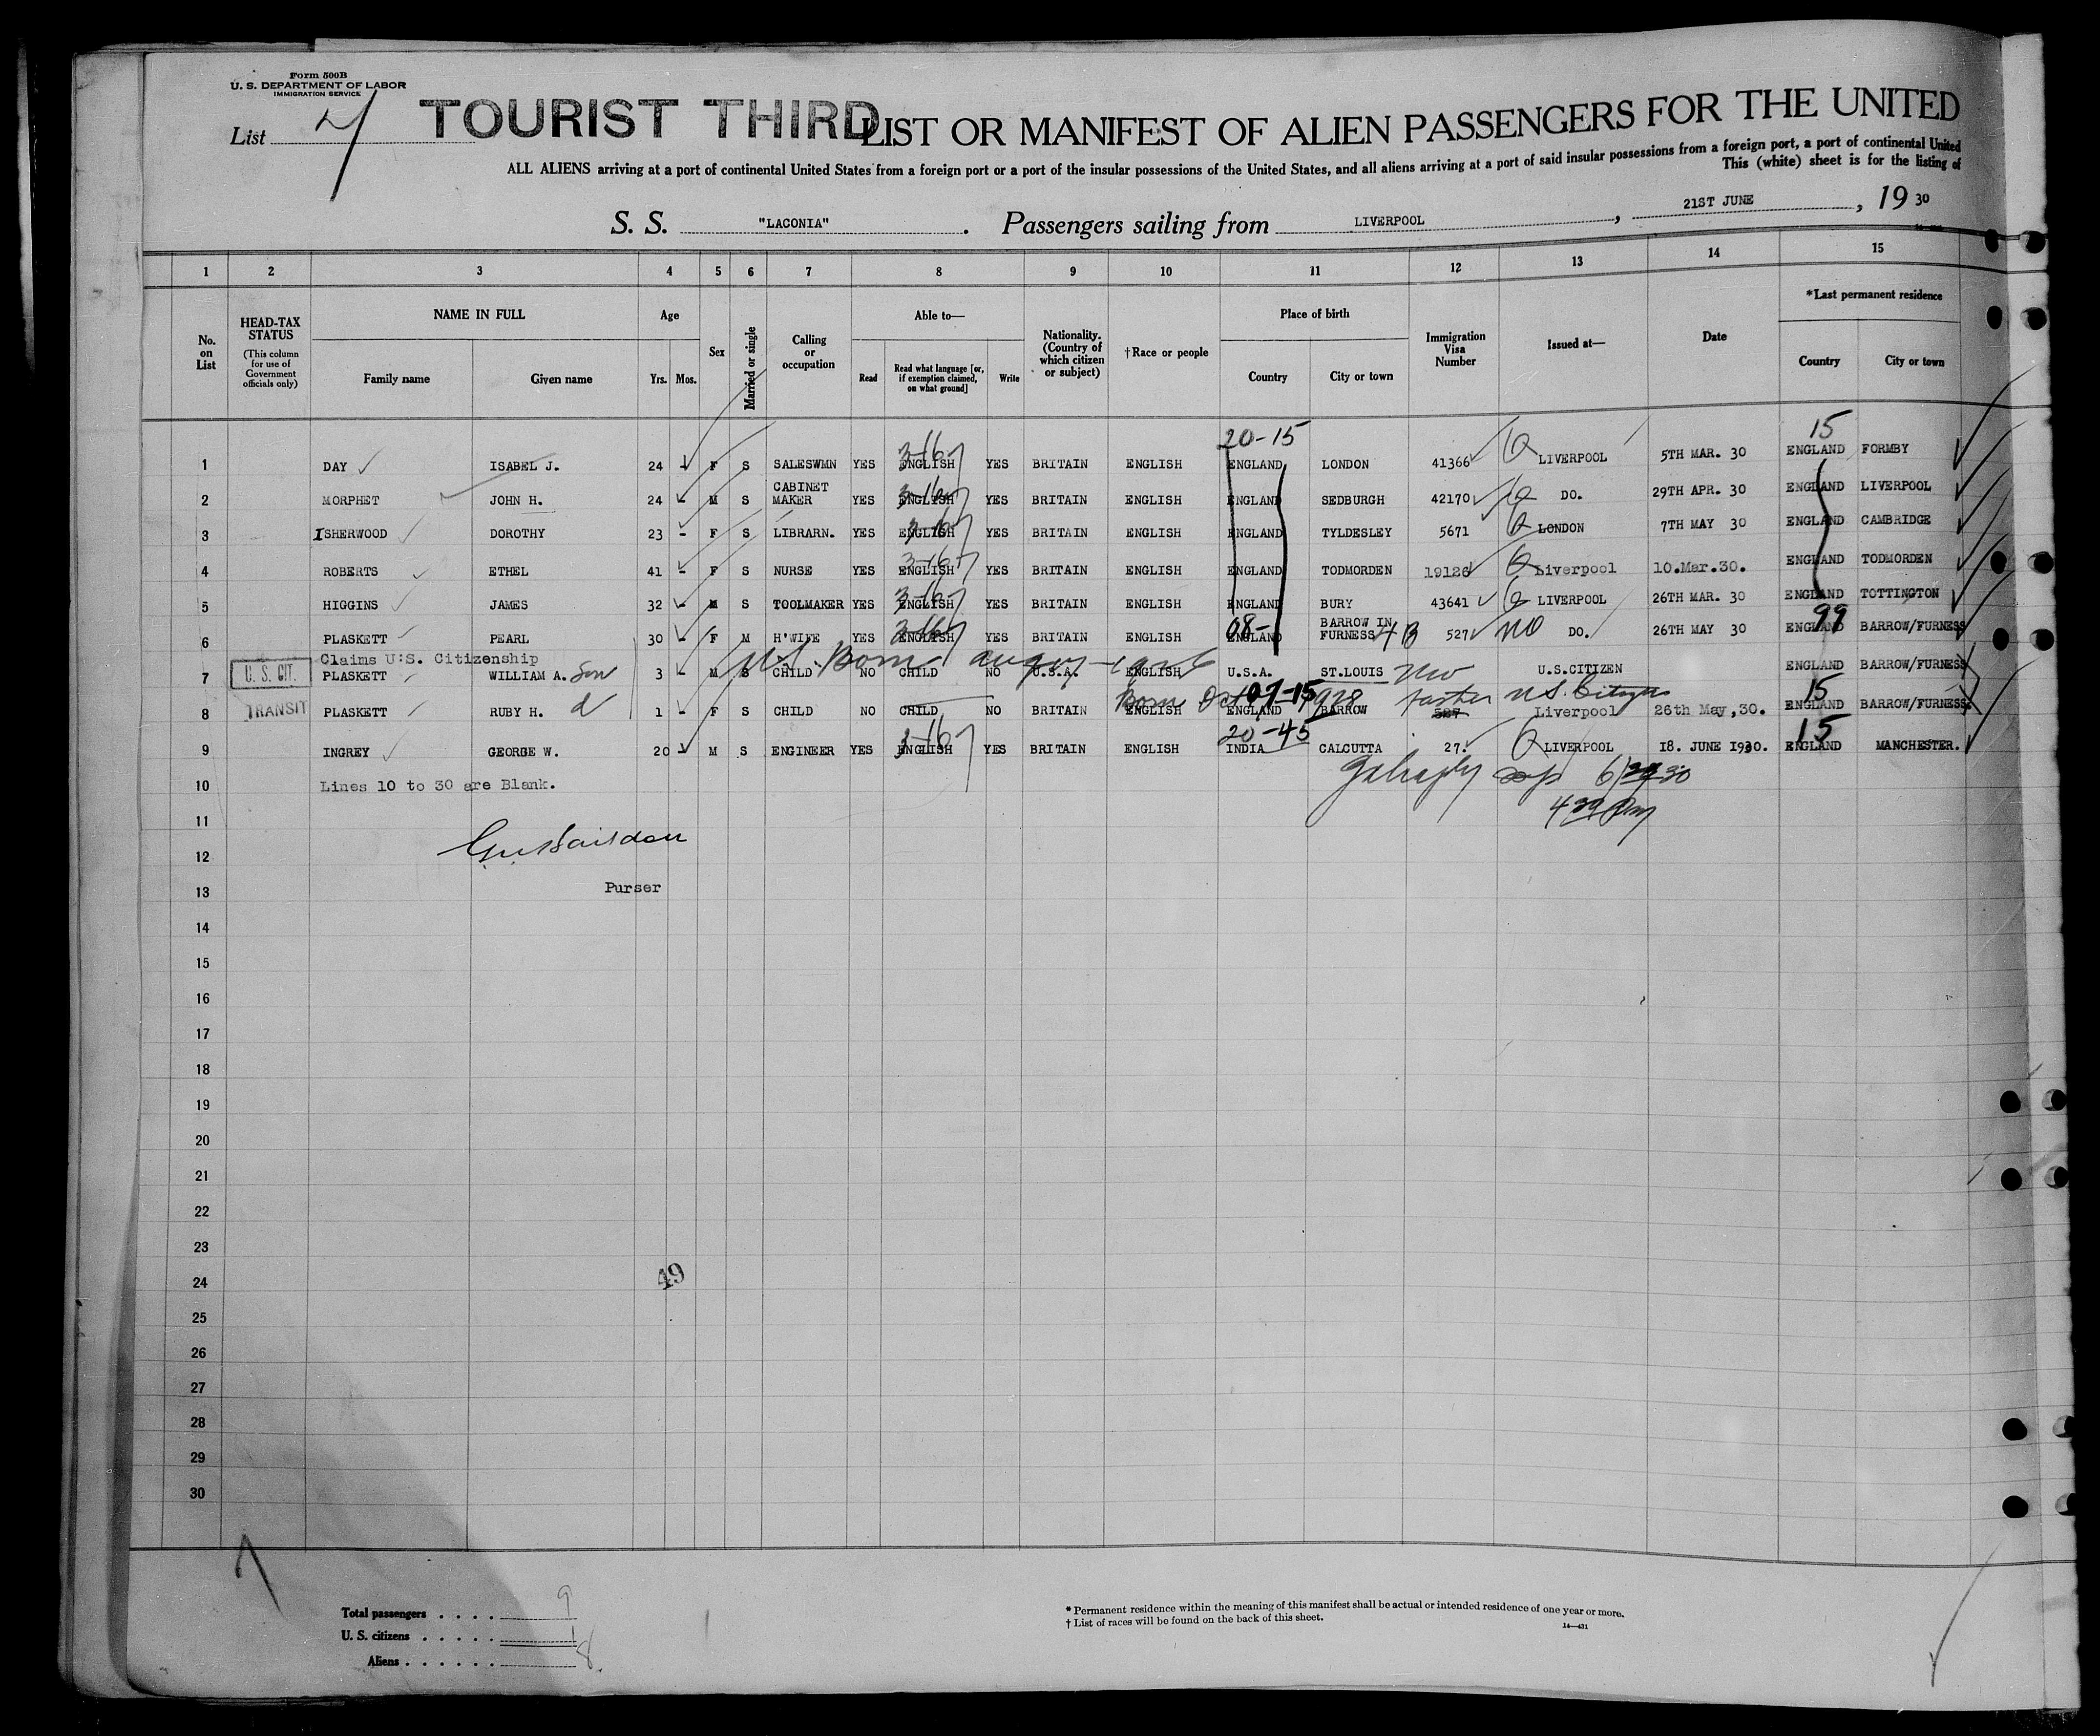 Form 500B
U. S. DEPARTMENT OF LABOR
IMMIGRATION SERVICE
List 4
TOURIST THIRD
LIST OR MANIFEST OF ALIEN PASSENGERS FOR THE UNITED
ALL ALIENS arriving at a port of continental United States from a foreign port or a port of the insular possessions of the United States, and all aliens arriving at a port of said insular possessions from a foreign port, a port of continental United
This (white) sheet is for the listing of
S. S. "LACONIA". Passengers sailing from LIVERPOOL, 21ST JUNE, 19 30
1 2 3 4 5 6 7 8 9 10 11 12 13 14 15
No. on List
HEAD-TAX STATUS
(This column for use of Government officials only)
NAME IN FULL
Family name Given name
Age
Yrs. Mos.
Sex
Married or single
Calling or occupation
Able to—
Read Read what language [or, if exemption claimed, on what ground] Write
Nationality. (Country of which citizen or subject)
†Race or people
Place of birth
Country City or town
Immigration Visa Number
Issued at—
Date
*Last permanent residence
Country City or town
20-15 15
1 DAY ISABEL J. 24 - F S SALESWMN YES ENGLISH YES BRITAIN ENGLISH ENGLAND LONDON 41366 LIVERPOOL 5TH MAR. 30 ENGLAND FORMBY
2 MORPHET JOHN H. 24 - M S CABINET MAKER YES ENGLISH YES BRITAIN ENGLISH ENGLAND SEDBURGH 42170 DO. 29TH APR. 30 ENGLAND LIVERPOOL
3 ISHERWOOD DOROTHY 23 - F S LIBRARN. YES ENGLISH YES BRITAIN ENGLISH ENGLAND TYLDESLEY 5671 LONDON 7TH MAY 30 ENGLAND CAMBRIDGE
4 ROBERTS ETHEL 41 - F S NURSE YES ENGLISH YES BRITAIN ENGLISH ENGLAND TODMORDEN 19126 Liverpool 10.Mar.30. ENGLAND TODMORDEN
5 HIGGINS JAMES 32 - M S TOOLMAKER YES ENGLISH YES BRITAIN ENGLISH ENGLAND BURY 43641 LIVERPOOL 26TH MAR. 30 ENGLAND TOTTINGTON
08- 99
6 PLASKETT PEARL 30 - F M H'WIFE YES ENGLISH YES BRITAIN ENGLISH ENGLAND BARROW IN FURNESS 4B 527 NO DO. 26TH MAY 30 ENGLAND BARROW/FURNESS
Claims U:S. Citizenship
U. S. CIT.
7 PLASKETT WILLIAM A. Son 3 - M S CHILD NO CHILD NO U.S.A. ENGLISH U.S.A. ST.LOUIS U.S.CITIZEN ENGLAND BARROW/FURNESS
Born Oct 07-15 1928 Father U.S. Citizen 15
TRANSIT
8 PLASKETT RUBY H. d 1 - F S CHILD NO CHILD NO BRITAIN ENGLISH ENGLAND BARROW 527 Liverpool 26th May,30. ENGLAND BARROW/FURNESS.
20-45 15
9 INGREY GEORGE W. 20 - M S ENGINEER YES ENGLISH YES BRITAIN ENGLISH INDIA CALCUTTA 27. LIVERPOOL 18. JUNE 1930. ENGLAND MANCHESTER.
10 Lines 10 to 30 are Blank.
11
12
13 Purser
14
15
16
17
18
19
20
21
22
23
24 49
25
26
27
28
29
30
Total passengers . . . . 9
U. S. citizens . . . . . 1
Aliens . . . . . . 8
* Permanent residence within the meaning of this manifest shall be actual or intended residence of one year or more.
† List of races will be found on the back of this sheet.
14—431